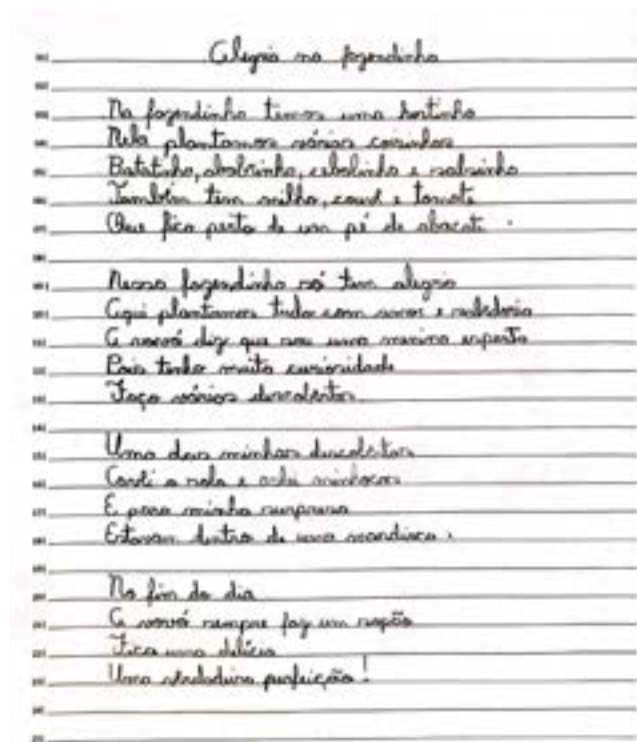 Alegria na fazendinha
Na fazendinha temos uma hortinha
Nela plantamos várias coisinhas
Batatinha, abobrinha, cebolinha e salsinha
Também tem milho, couve e tomate
Que fica perto de um pé de abacate.
Nessa fazendinha só tem alegria
Aqui plantamos tudo com amor e sabedoria
A vovó diz que sou uma menina esperta
Pois tenho muita curiosidade
Faço várias descobertas.
Uma das minhas descobertas
a e achei minhocas
E para minha surpresa
Estavam dentro de uma mandioca.
No fim do dia
A vovó sempre faz um sopão
Fica uma delícia
Uma verdadeira perfeição!